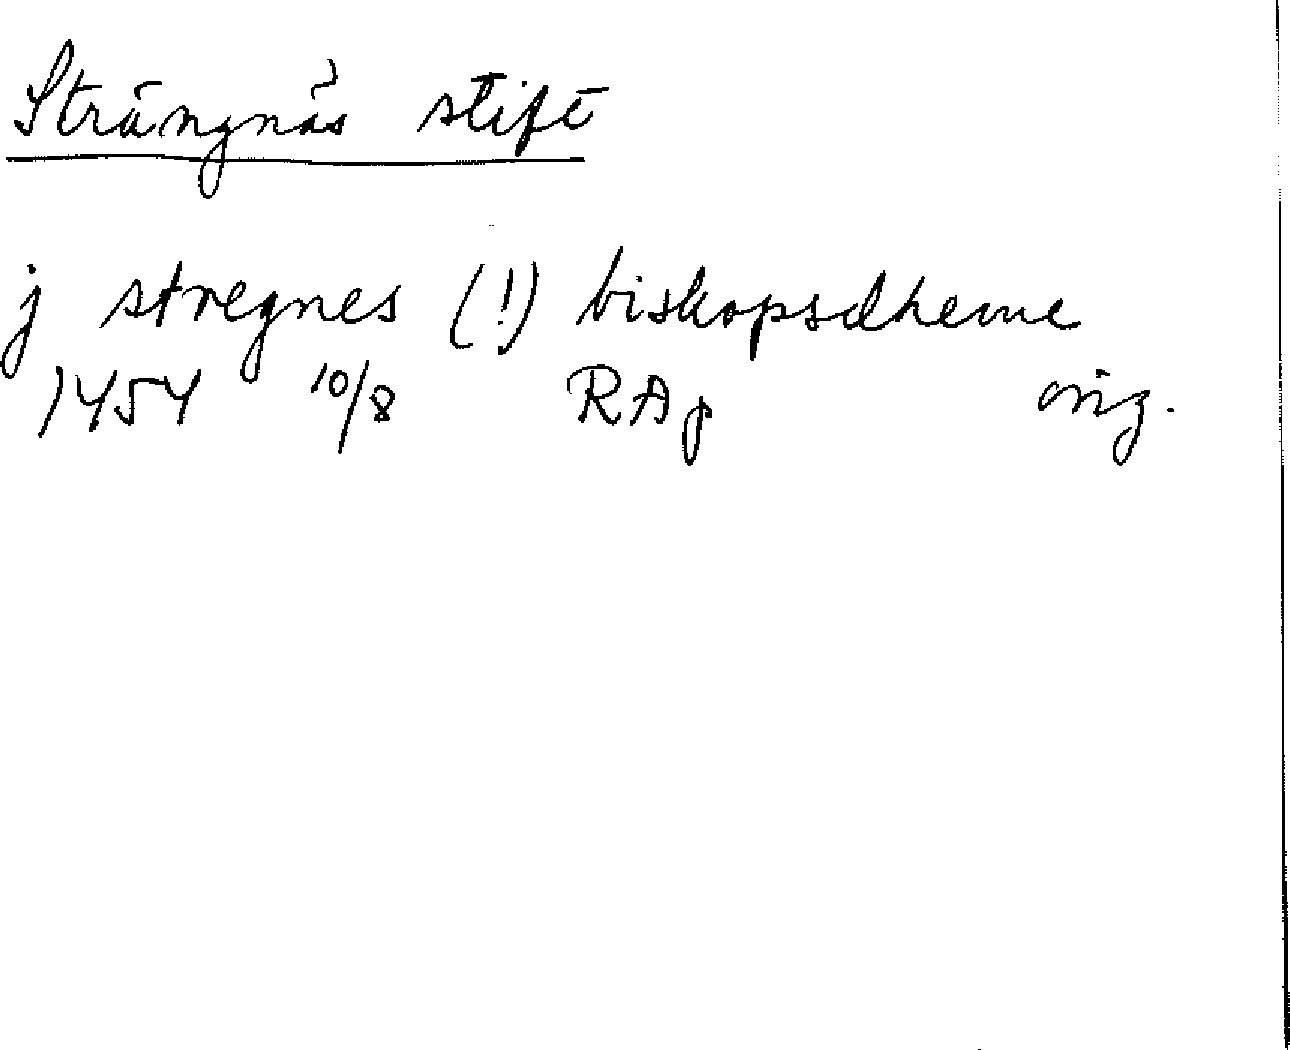 Strängnäs stift
j stregnes (!) biskopsdheme
1454 10/8 RAp orig.